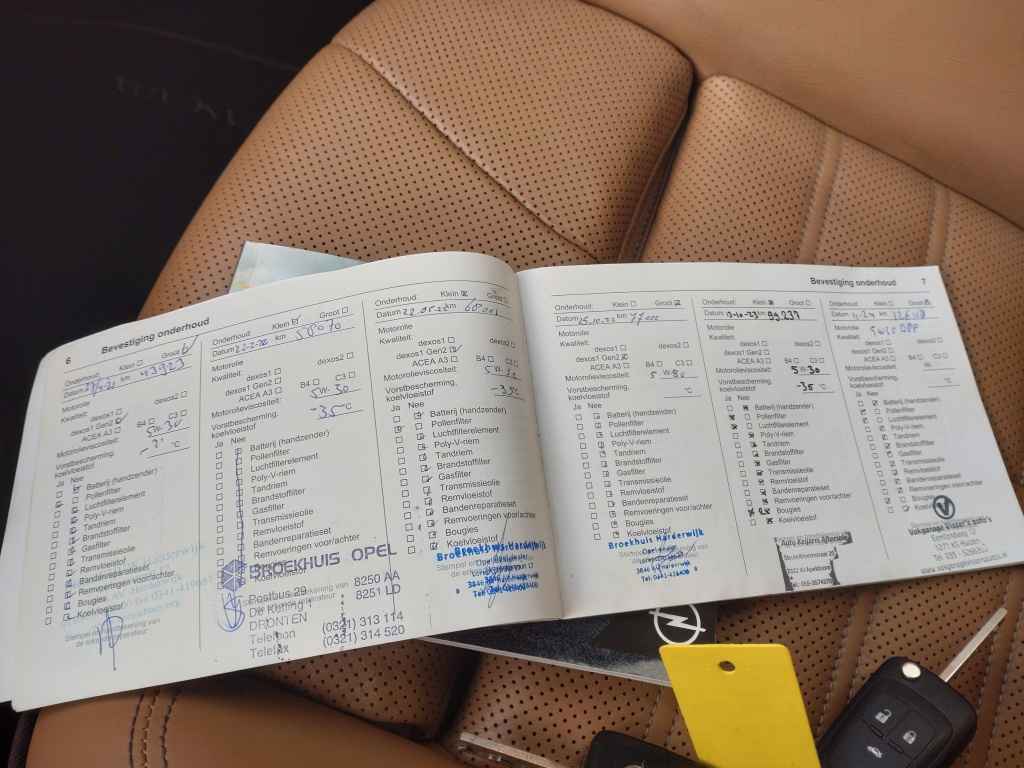 6 Bevestiging onderhoud
Onderhoud: Klein Groot
Datum km 43923
Motorolie
Kwaliteit:
dexos1 dexos2
dexos1 Gen2
ACEA A3 B4 C3
Motorolieviscositeit: 5W30
Vorstbescherming, °C
koelvloeistof
Ja Nee
Batterij (handzender)
Pollenfilter
Luchtfilterelement
Poly-V-riem
Tandriem
Brandstoffilter
Gasfilter
Transmissieolie
Remvloeistof
Bandenreparatieset
Remvoeringen voor/achter
Bougies
Koelvloeistof
Onderhoud: Klein Groot
Datum km
Motorolie
Kwaliteit: dexos2
dexos1
dexos1 Gen2
ACEA A3 B4 C3
Motorolieviscositeit: 5W30
Vorstbescherming,
koelvloeistof -35°C
Ja Nee
Batterij (handzender)
Pollenfilter
Luchtfilterelement
Poly-V-riem
Tandriem
Brandstoffilter
Gasfilter
Transmissieolie
Remvloeistof
Bandenreparatieset
Remvoeringen voor/achter
BROEKHUIS OPEL
Postbus 29 8250 AA
De Ketting 1 8251 LD
DRONTEN
Telefoon (0321) 313 114
Telefax (0321) 314 520
Onderhoud: Klein Groot
Datum km
Motorolie
Kwaliteit:
dexos1 dexos2
dexos1 Gen2
ACEA A3 B4 C3
Motorolieviscositeit: 5W30
Vorstbescherming,
koelvloeistof -35°C
Ja Nee
Batterij (handzender)
Pollenfilter
Luchtfilterelement
Poly-V-riem
Tandriem
Brandstoffilter
Gasfilter
Transmissieolie
Remvloeistof
Bandenreparatieset
Remvoeringen voor/achter
Bougies
Koelvloeistof
Broekhuis Harderwijk
Bevestiging onderhoud 7
Onderhoud: Klein Groot
Datum 25.10.22 km 77000
Motorolie
Kwaliteit:
dexos1 dexos2
dexos1 Gen2
ACEA A3 B4 C3
Motorolieviscositeit: 5W30
Vorstbescherming, °C
koelvloeistof
Ja Nee
Batterij (handzender)
Pollenfilter
Luchtfilterelement
Poly-V-riem
Tandriem
Brandstoffilter
Gasfilter
Transmissieolie
Remvloeistof
Bandenreparatieset
Remvoeringen voor/achter
Bougies
Koelvloeistof
Broekhuis Harderwijk
Onderhoud: Klein Groot
Datum 12-10-23 km 99.237
Motorolie
Kwaliteit:
dexos1 dexos2
dexos1 Gen2
ACEA A3 B4 C3
Motorolieviscositeit: 5W30
Vorstbescherming, -35 °C
koelvloeistof
Ja Nee
Batterij (handzender)
Pollenfilter
Luchtfilterelement
Poly-V-riem
Tandriem
Brandstoffilter
Gasfilter
Transmissieolie
Remvloeistof
Bandenreparatieset
Remvoeringen voor/achter
Bougies
Koelvloeistof
Onderhoud: Klein Groot
Datum km
Motorolie
Kwaliteit:
dexos1 dexos2
dexos1 Gen2
ACEA A3 B4 C3
Motorolieviscositeit:
Vorstbescherming, °C
koelvloeistof
Ja Nee
Batterij (handzender)
Pollenfilter
Luchtfilterelement
Poly-V-riem
Tandriem
Brandstoffilter
Gasfilter
Transmissieolie
Remvloeistof
Bandenreparatieset
Remvoeringen voor/achter
Bougies
Koelvloeistof